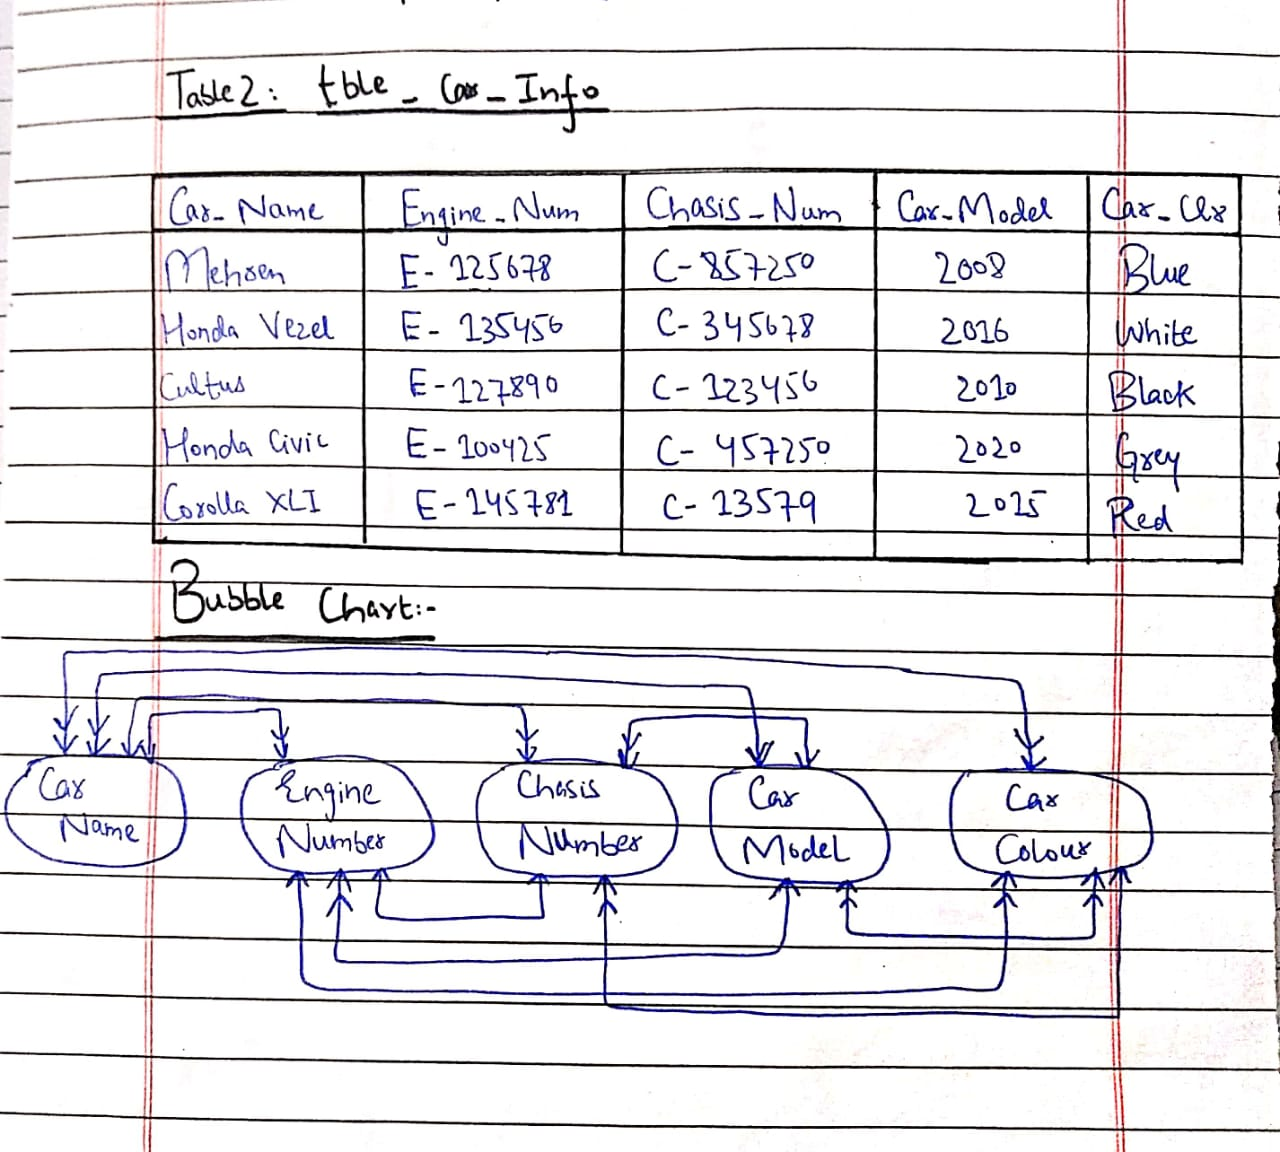 Table 2: tble_Car_Info
Car_Name Engine_Num Chasis_Num Car_Model Car_Clr
Mehran E-125678 C-857250 2008 Blue
Honda Vezel E-135456 C-345678 2016 White
Cultus E-127890 C-123456 2010 Black
Honda Civic E-100425 C-457250 2020 Grey
Corolla XLI E-145781 C-13579 2015 Red
Bubble Chart:-
Car Engine Chasis Car Car
Name Number Number Model Colour